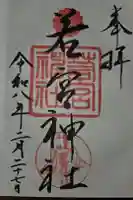 奉拝
若宮神社
令和八年二月二十七日